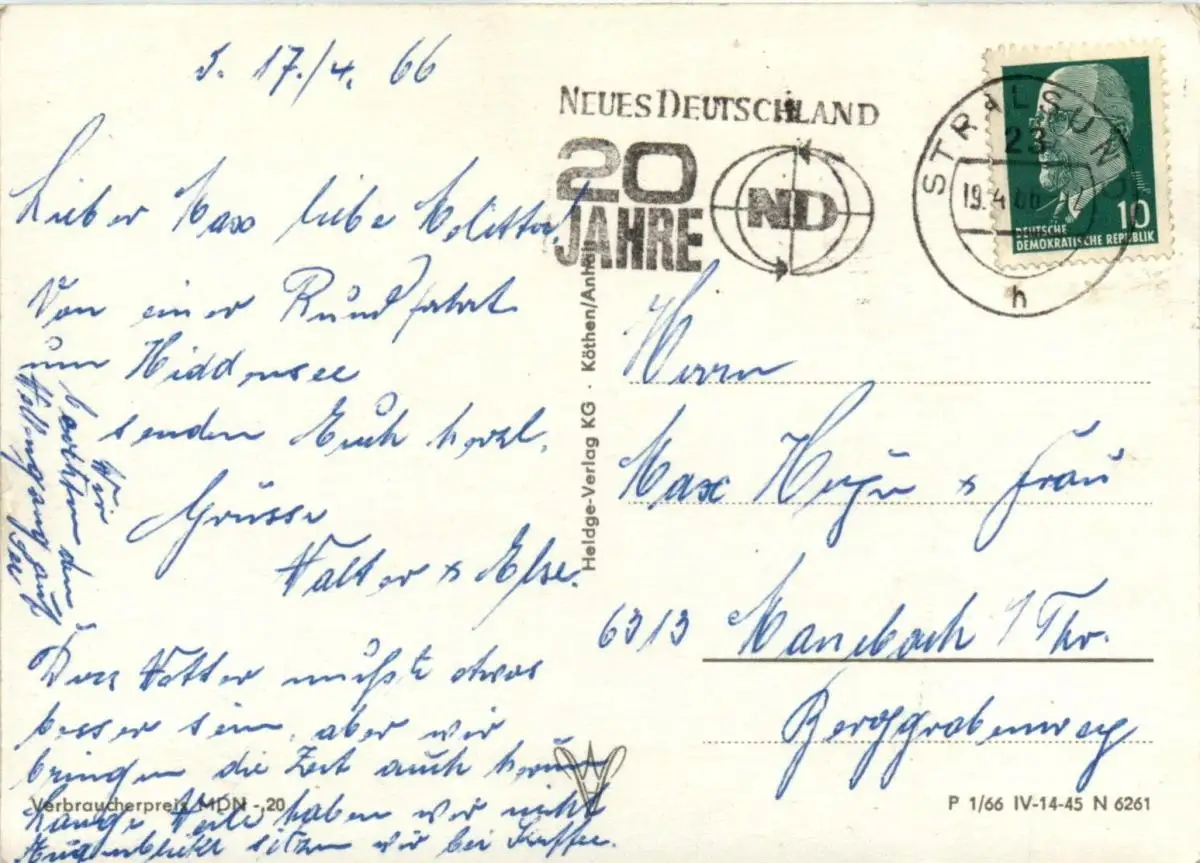 S. 17./4. 66
Lieber Max liebe Melitta!
Von einer Rundfahrt
um Hiddensee
senden Euch herzl.
Grüsse
Walter & Else.
Das Wetter müßte etwas
besser sein, aber wir
bringen die Zeit auch herum
Lange Weile haben wir nicht
Augenblickl sitzen wir bei Kaffee.
Wir
den
auf
NEUES DEUTSCHLAND
20
JAHRE
ND
STRALSUND
23
19.4.66
h
10
DEUTSCHE
DEMOKRATISCHE REPUBLIK
Heldge-Verlag KG · Köthen/Anhalt
Herrn
Max & Frau
6313 Manebach / Thr.
Berggrabenweg
Verbraucherpreis MDN -,20
P 1/66 IV-14-45 N 6261